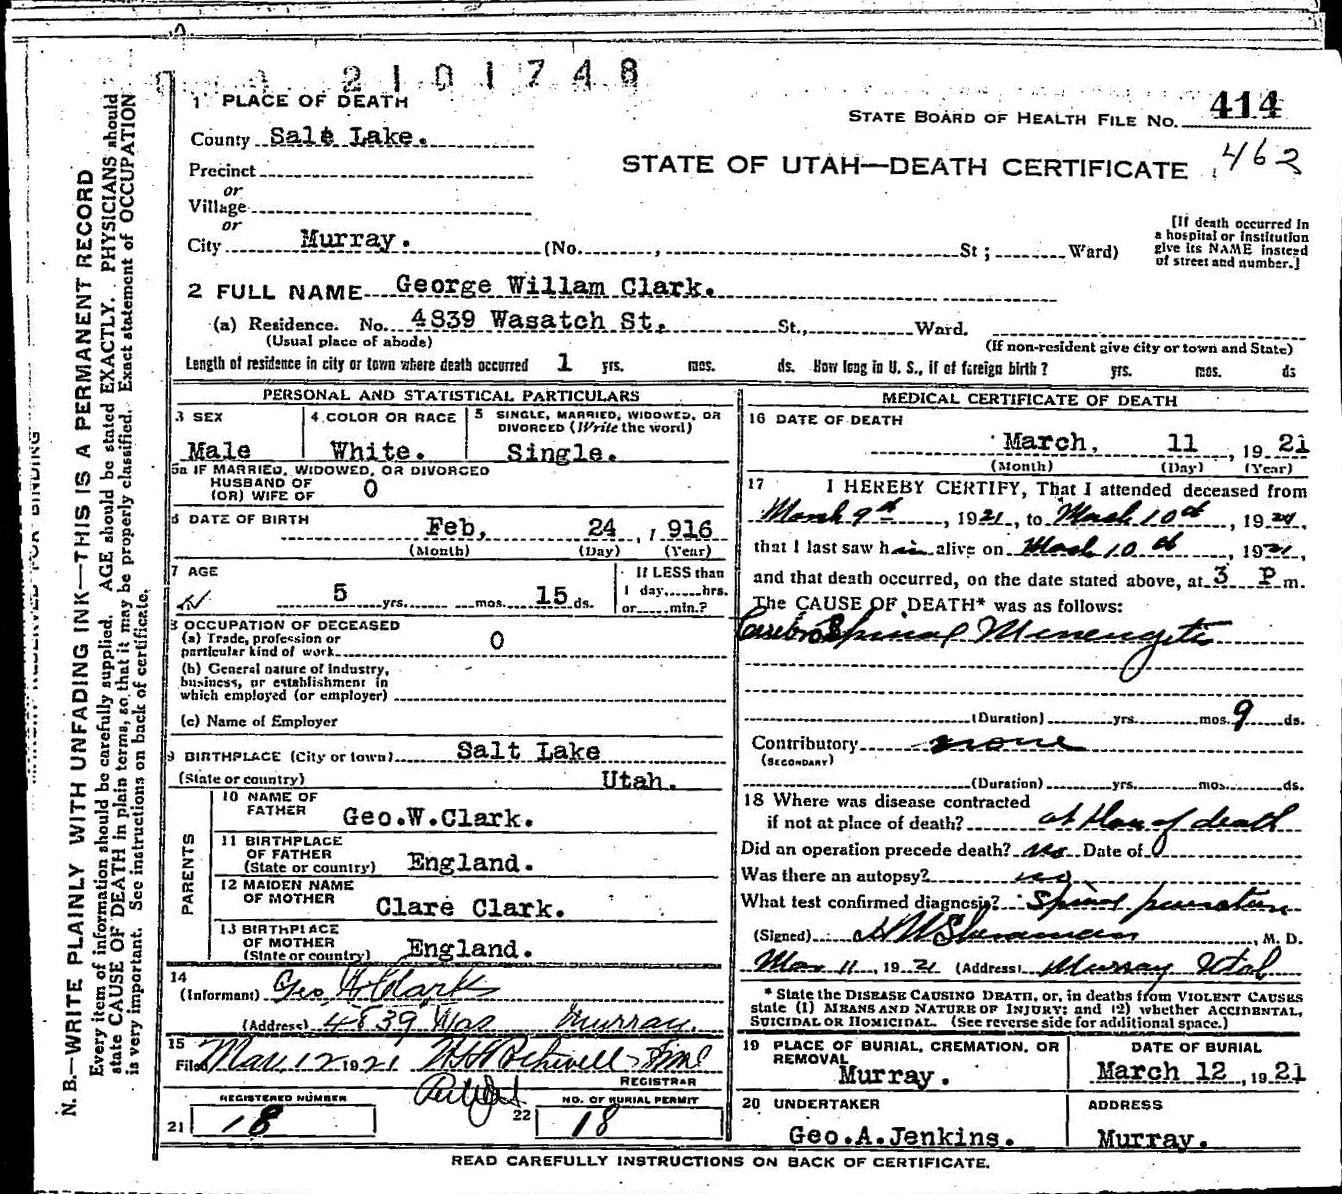 2101748
1 PLACE OF DEATH
STATE BOARD OF HEALTH FILE NO. 414
County Salt Lake.
STATE OF UTAH—DEATH CERTIFICATE 462
Precinct
or
Village
or
City Murray. (No. , St ; Ward)
[If death occurred in
a hospital or institution
give its NAME instead
of street and number.]
2 FULL NAME George Willam Clark.
(a) Residence. No. 4839 Wasatch St. St., Ward.
(Usual place of abode) (If non-resident give city or town and State)
Length of residence in city or town where death occurred 1 yrs. mos. ds. How long in U. S., if of foreign birth? yrs. mos. ds
PERSONAL AND STATISTICAL PARTICULARS
3 SEX
Male
4 COLOR OR RACE
White.
5 SINGLE, MARRIED, WIDOWED, OR
DIVORCED (Write the word)
Single.
5a IF MARRIED, WIDOWED, OR DIVORCED
HUSBAND OF
(OR) WIFE OF 0
6 DATE OF BIRTH
Feb, 24 , 1916
(Month) (Day) (Year)
7 AGE
5 yrs. mos. 15 ds.
If LESS than
1 day, hrs.
or min.?
8 OCCUPATION OF DECEASED
(a) Trade, profession or
particular kind of work 0
(b) General nature of industry,
business, or establishment in
which employed (or employer)
(c) Name of Employer
9 BIRTHPLACE (City or town) Salt Lake
(State or country) Utah.
PARENTS
10 NAME OF
FATHER Geo.W.Clark.
11 BIRTHPLACE
OF FATHER
(State or country) England.
12 MAIDEN NAME
OF MOTHER Clare Clark.
13 BIRTHPLACE
OF MOTHER
(State or country) England.
14
(Informant) Geo W Clark
(Address) 4839 Was Murray.
15
Filed Mar 12 1921
REGISTRAR
REGISTERED NUMBER
21 18
NO. OF BURIAL PERMIT
22 18
MEDICAL CERTIFICATE OF DEATH
16 DATE OF DEATH
March, 11 , 19 21
(Month) (Day) (Year)
17 I HEREBY CERTIFY, That I attended deceased from
March 9th , 1921, to March 10th , 1921,
that I last saw him alive on March 10th , 1921,
and that death occurred, on the date stated above, at 3 P m.
The CAUSE OF DEATH* was as follows:
Cerebro Spinal Menengetis
(Duration) yrs. mos. 9 ds.
Contributory none
(SECONDARY)
(Duration) yrs. mos. ds.
18 Where was disease contracted
if not at place of death? at place of death
Did an operation precede death? no Date of
Was there an autopsy? no
What test confirmed diagnosis? Spinal puncture
(Signed) , M. D.
Mar 11, 1921 (Address) Murray Utah
* State the DISEASE CAUSING DEATH, or, in deaths from VIOLENT CAUSES
state (1) MEANS AND NATURE OF INJURY; and (2) whether ACCIDENTAL,
SUICIDAL OR HOMICIDAL. (See reverse side for additional space.)
19 PLACE OF BURIAL, CREMATION, OR
REMOVAL
Murray.
DATE OF BURIAL
March 12 , 1921
20 UNDERTAKER
Geo.A.Jenkins.
ADDRESS
Murray.
READ CAREFULLY INSTRUCTIONS ON BACK OF CERTIFICATE.
N. B.—WRITE PLAINLY WITH UNFADING INK—THIS IS A PERMANENT RECORD
Every item of information should be carefully supplied. AGE should be stated EXACTLY. PHYSICIANS should
state CAUSE OF DEATH in plain terms, so that it may be properly classified. Exact statement of OCCUPATION
is very important. See instructions on back of certificate.